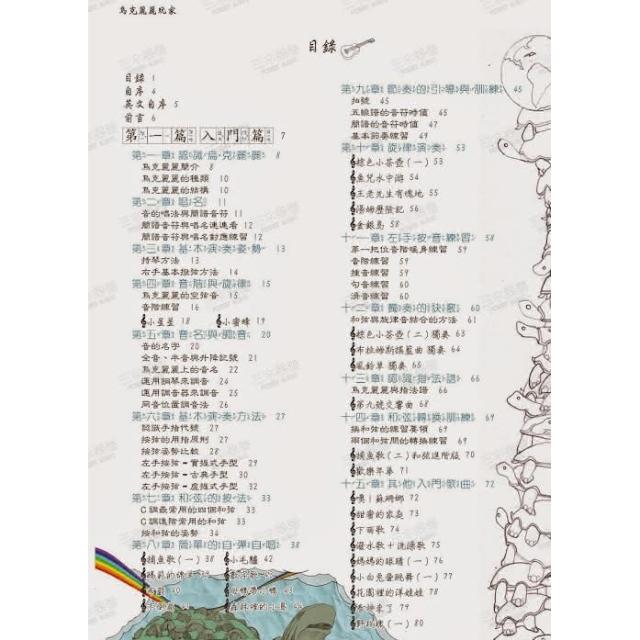 烏克麗麗玩家
目錄
目錄 1
自序 4
英文自序 5
前言 6
第一篇 入門篇 7
第一章 認識烏克麗麗 8
烏克麗麗簡介 8
烏克麗麗的種類 10
烏克麗麗的結構 10
第二章 唱名 11
音的唱法與簡譜音符 11
簡譜音符與唱名連連看 12
簡譜音符與唱名對應練習 12
第三章 基本演奏姿勢 13
持琴方法 13
右手基本撥弦方法 14
第四章 音階與旋律 15
烏克麗麗的空弦音 15
音階練習 16
小星星 18 小蜜蜂 19
第五章 音名與調音 20
音的名字 20
全音、半音與升降記號 21
烏克麗麗上的音名 22
運用鋼琴來調音 24
運用調音器來調音 25
同音位置調音法 26
第六章 基本演奏方法 27
認識手指代號 27
按弦的用指原則 27
按弦姿勢比較 28
左手按弦－實握式手型 29
左手按弦－古典手型 30
左手按弦－虛握式手型 32
第七章 和弦的按法 33
C調最常用的四個和弦 33
C調進階常用的和弦 33
按和弦的姿勢 34
第八章 簡單的自彈自唱 38
捕魚歌(一) 38 小毛驢 42
第九章 節奏的引導與訓練 45
拍號 45
五線譜的音符時值 45
簡譜的音符時值 47
基本節奏練習 49
第十章 旋律演奏 53
棕色小茶壺(一) 53
魚兒水中游 54
王老先生有塊地 55
湯姆歷險記 56
金銀島 58
十一章 左手按音練習 58
第一把位音階暖身練習 59
音階練習 59
搥音練習 59
勾音練習 60
滑音練習 60
十二章 獨奏的訣竅 60
和弦與旋律音結合的方法 61
棕色小茶壺(二)獨奏 63
布拉姆斯搖籃曲 獨奏 64
風鈴草 獨奏 65
十三章 認識指法譜 66
烏克麗麗與指法譜 66
第九號交響曲 68
十四章 和弦轉換訓練 69
換和弦的練習要領 69
兩個和弦間的轉換練習 69
捕魚歌(二)和弦進階版 70
歡樂年華 71
十五章 其他入門歌曲 72
奧！蘇珊娜 72
甜蜜的家庭 73
下雨歌 74
潑水歌＋洗澡歌 75
媽媽的眼睛(一) 76
小白兔愛跳舞(一) 77
花園裡的洋娃娃 78
春神來了 79
野玫瑰(一) 80